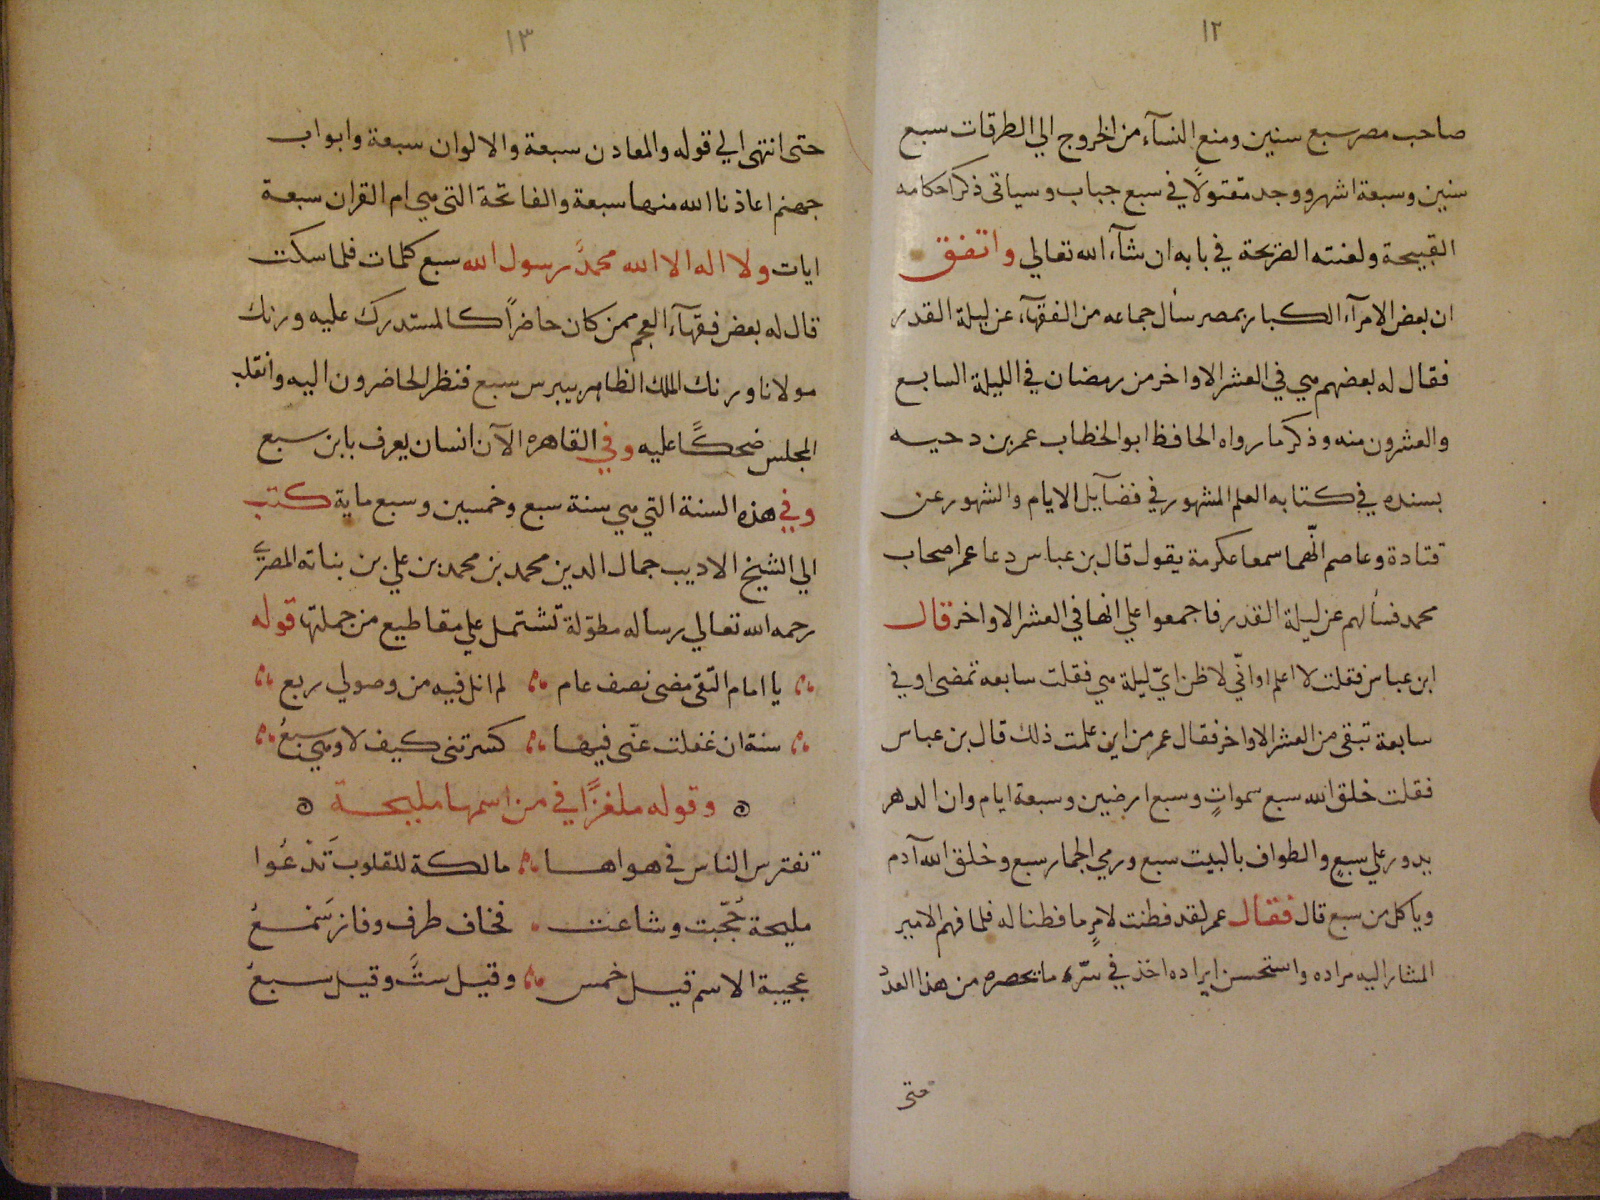 ١٢
صاحب مصر سبع سنين ومنع النسآء من الخروج الي الطرقات سبع
سنين وسبعة اشهر ووجد مقتولًا في سبع جباب وسياتى ذكر احكامه
القبيحة ولعنته الصريحة في بابه ان شآء الله تعالي واتفق
ان بعض الامرآء الكبار بمصر سأل جماعه من الفقهآء عن ليلة القدر
فقال له بعضهم هي في العشر الاواخر من رمضان في الليلة السابع
والعشرون منه وذكر ما رواه الحافظ ابو الخطاب عمر بن دحيه
بسنده في كتابه العلم المشهور في فضآيل الايام والشهور عن
قتادة وعاصم انّهما سمعا عكرمة يقول قال بن عباس دعا عمر اصحاب
محمد فسألهم عن ليلة القدر فاجمعوا علي انها في العشر الاواخر قال
ابن عباس فقلت لا اعلم او انّي لاظن ايّ ليلة هي فقلت سابعه تمضى او في
سابعة تبقى من العشر الاواخر فقال عمر من اين علمت ذلك قال بن عباس
فقلت خلق الله سبع سمواتٍ وسبع ارضين وسبعة ايام وان الدهر
يدور علي سبعٍ والطواف بالبيت سبع ورمي الجمار سبع وخلق الله آدم
وياكل من سبع قال فقال عمر لقد فطنت لامرٍ ما فطنا له فلما فهم الامير
المشار اليه مراده واستحسن ايراده اخذ في سرّه ما تحصره من هذا العدد
حتى
١٣
حتى انتهى الي قوله والمعادن سبعة والالوان سبعة وابواب
جهنم اعاذنا الله منها سبعة والفاتحة التى هي ام القران سبعة
ايات ولا اله الا الله محمدٌ رسول الله سبع كلمات فلما سكت
قال له بعض فقهآء العجم ممن كان حاضراً كالمستدرك عليه ورنك
مولانا ورنك الملك الظاهر بيبرس سبع فنظر الحاضرون اليه وانقلب
المجلس ضحكًا عليه وفي القاهره الآن انسان يعرف بابن سبع
وفي هذه السنة التي هي سنة سبع وخمسين وسبع ماية كتب
الي الشيخ الاديب جمال الدين محمد بن محمد بن علي بن بناته المصري
رحمه الله تعالي رساله مطوّلة تشتمل علي مقاطيع من جملتها قوله
يا امام التّقى مضى نصف عام لم انل فيه من وصولي ربع
سنة ان غفلت عنّى فيها كسرتنى كيف لا وهي سبعُ
وقوله ملغزًا في من اسمها مليحة
تفترس الناس في هواها مالكة للقلوب تدْعُوا
مليحة حُجّبت وشاعت فخاف طرف وفاز سَمْعُ
عجيبة الاسم قيل خمس وقيل ستٌّ وقيل سبعُ